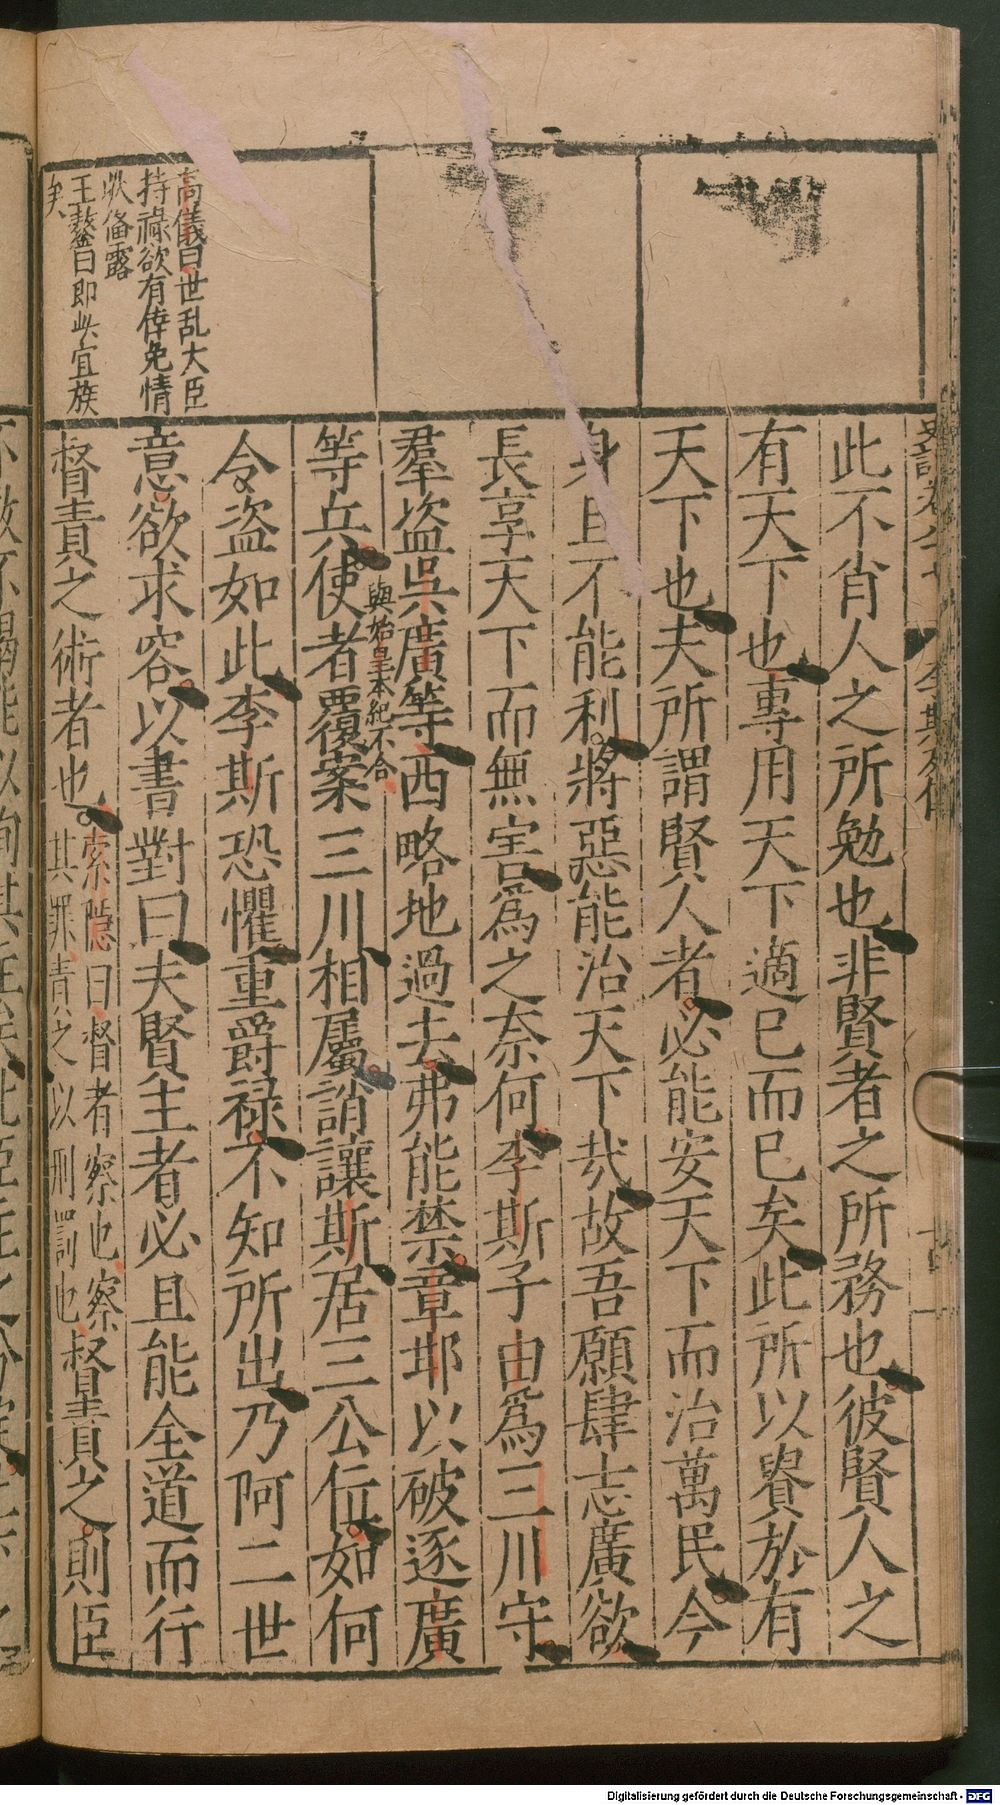 此不肖人之所勉也非賢者之所務也彼賢人之
有天下也專用天下適已而已矣此所以貴於有
天下也夫所謂賢人者必能安天下而治萬民今
身且不能利將惡能治天下㦲故吾願肆志廣欲
長享天下而無害爲之奈何李斯子由爲三川守
羣盗吳廣等西略地過去弗能禁章邯以破逐廣
等兵使者覆案三川相屬誚讓斯居三公位如何
與始皇本紀不合
令盗如此李斯恐懼重爵禄不知所出乃阿二世
意欲求容以書對曰夫賢主者必且能全道而行
督責之術者也
索隱曰督者察也察
其罪責之以刑罰也
督責之則臣
高儀曰世乱大臣
持祿欲有倖免情
狀俻露
王鏊曰即此宜族
矣
李斯列傳
Digitalisierung gefördert durch die Deutsche Forschungsgemeinschaft - DFG